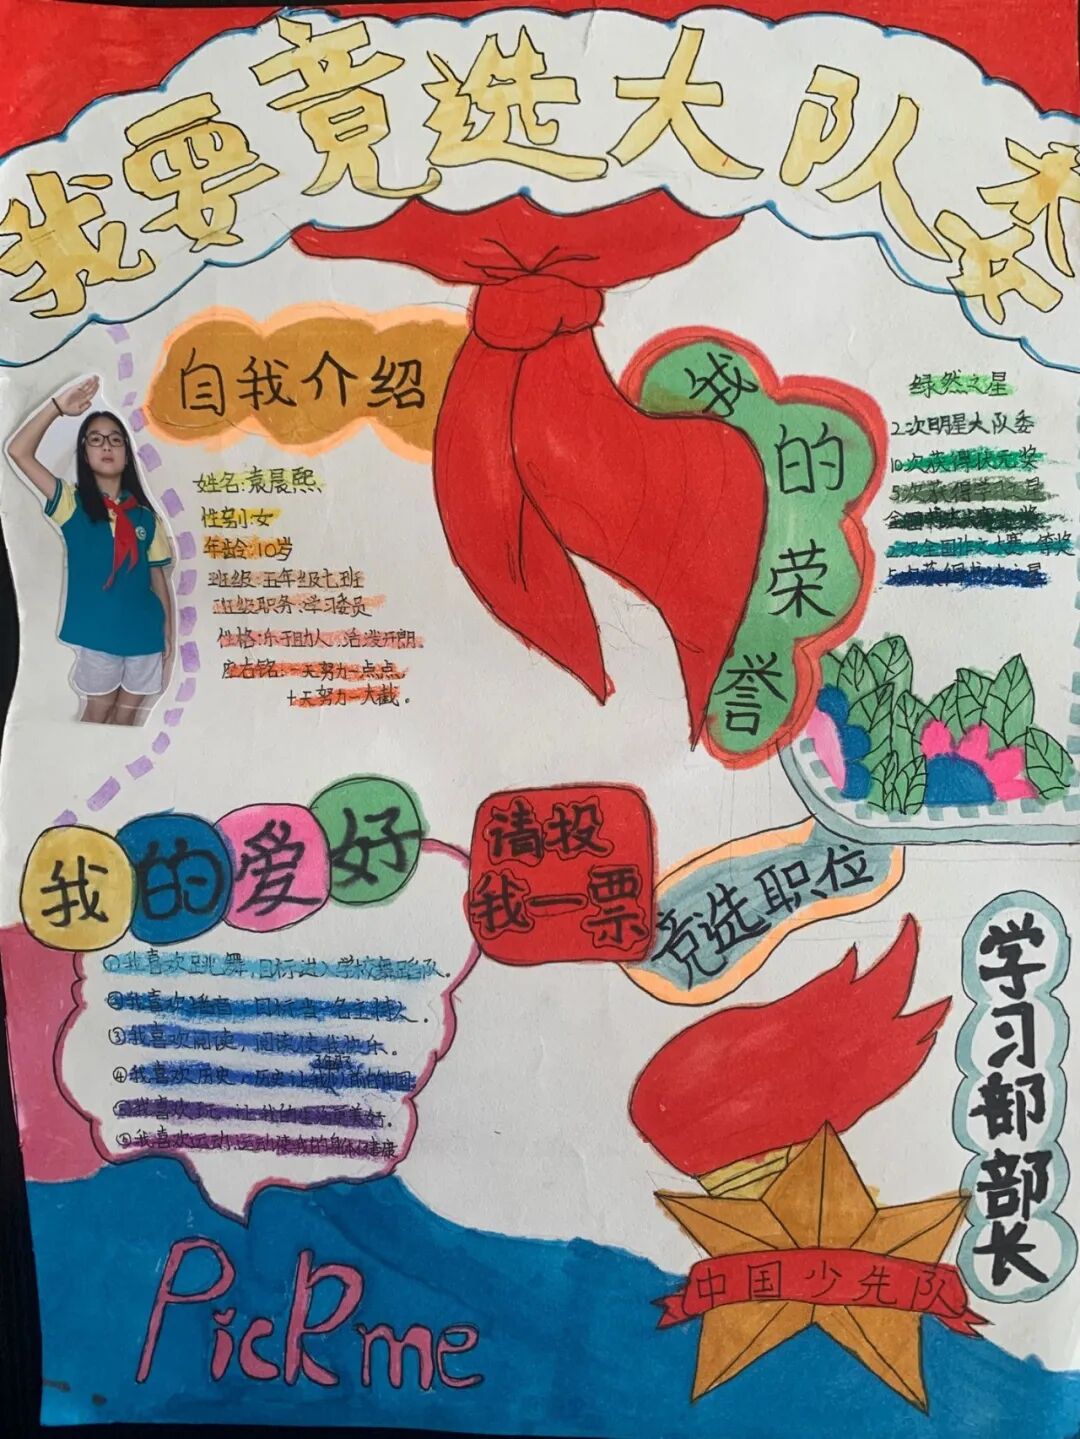 我要竞选大队委
自我介绍
姓名:袁晨熙
性别:女
年龄:10岁
班级:五年级七班
班级职务:学习委员
性格:乐于助人、活泼开朗
座右铭:一天努力一点点,
十天努力一大截。
我的荣誉
绿然之星
2次明星大队委
10次获得状元奖
5次获得学习之星
2次全国作文大赛一等奖
5次获得
我的爱好
①我喜欢跳舞,目标进入学校舞蹈队。
②我喜欢播音,目标当一名主持人。
③我喜欢阅读,阅读使我快乐。
④我喜欢历史,历史让我了解以前的中国
⑤我喜欢玩,让我的生活更美好。
⑤我喜欢运动,运动使我的身体健康
请投
我一票
竞选职位
学习部部长
中国少先队
Pick me